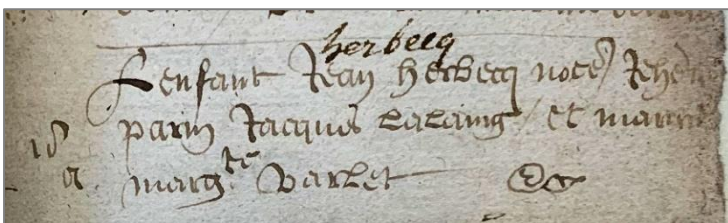 herbecq
L enfant Jean herbecq nōēe Jehēn
parin Jacques Lalaing / et marin
18
a marg.te Varlet